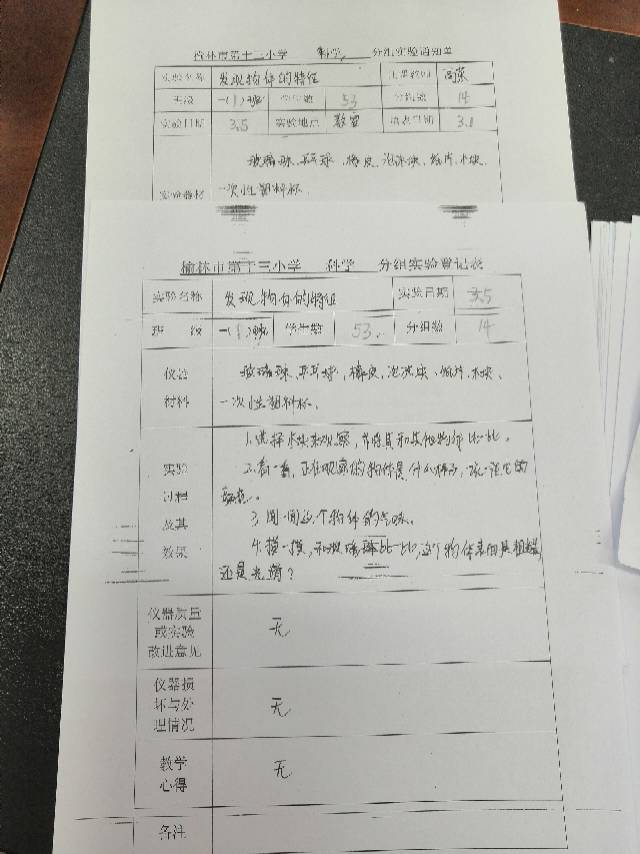 榆林市第十三小学 科学 分组实验通知单
实验名称 发现物体的特征
班级 一(1)班 学生数 53 分组数 14
实验日期 3.5 实验地点 教室 填表日期 3.1
玻璃球、乒乓球、橡皮、泡沫块、纸片、木块、
实验器材 一次性塑料杯
榆林市第十三小学 科学 分组实验登记表
实验名称 发现物体的特征 实验日期 3.5
班 级 一(1)班 学生数 53. 分组数 14
仪器 玻璃球、乒乓球、橡皮、泡沫块、纸片、木块、
材料 一次性塑料杯、
1.选择木块来观察,并将其和其他物体比一比。
实验 2.看一看,正在观察的物体是什么样子,说一说它的
过程
及其 3.闻一闻这个物体的气味。
效果 4.摸一摸,和玻璃球比一比,这个物体表面是粗糙
还是光滑?
仪器质量
或实验 无
改进意见
仪器损
坏与处 无
理情况
教学 无
心得
备注